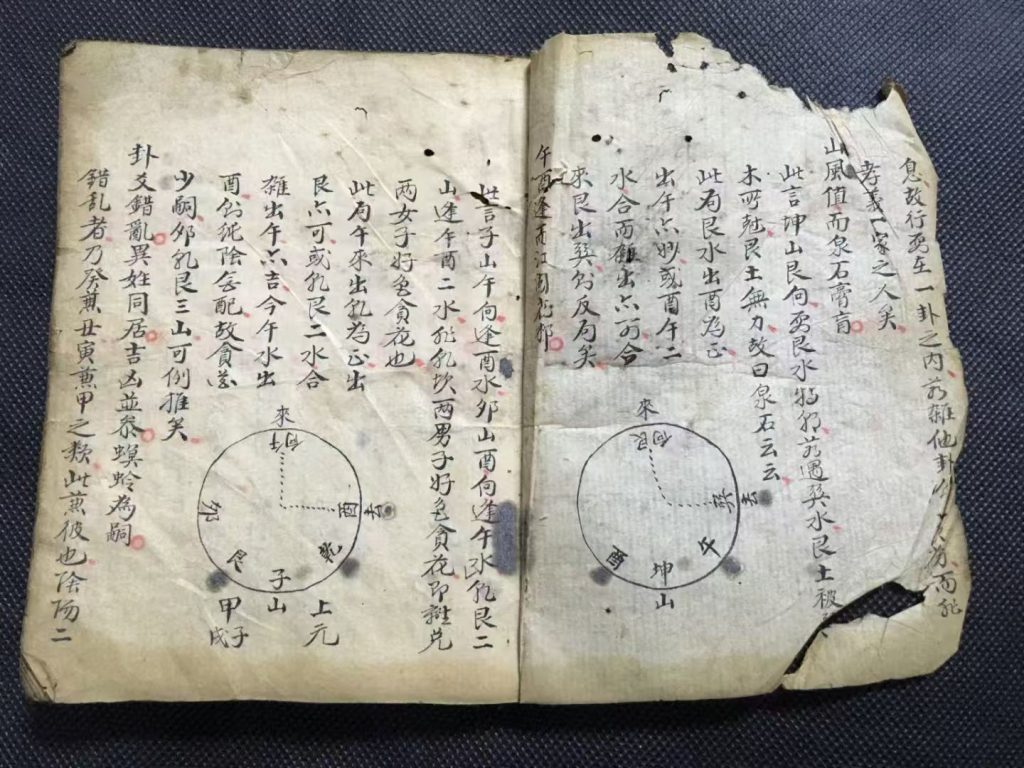 息故行要在一卦之內若雜他卦
孝義一家之人矣
山風值而泉石膏肓
此言坤山艮向要艮水特朝若遇巽水艮土被
木所尅艮土無力故曰泉石云云
此局艮水出酉為正
出午亦妙或酉午二
水合而艱出亦可合
來艮出巽勾反局矣
來
向艮
巽
去
午
坤
山
酉
午酉逢而江湖花酒
此言子山午向逢酉水卯山酉向逢午水乾艮二
山逢午酉二水乾坎兩男子好色貪花即離兌
兩女子好色貪花也
此局午來出乾為正出
艮亦可或乾艮二水合
雄出午亦吉今午水出
酉勾純陰無配故貪花
少嗣卯乾艮三山可例推矣
來
向午
酉
去
乾
子
山
艮
卯
上元
甲子
戌
卦爻錯亂異姓同居吉凶並泰螟蛉為嗣
錯乱者乃癸兼丑寅兼甲之類此兼彼也陰陽二